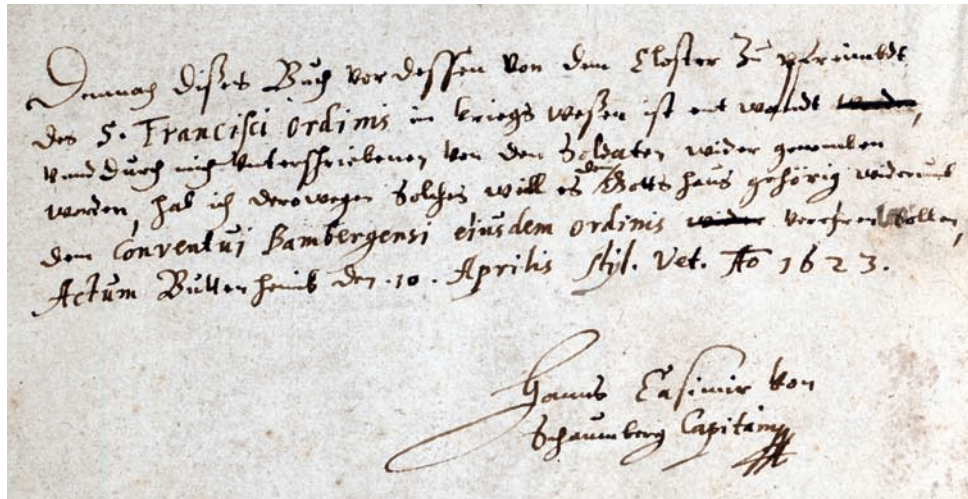 Demnach dises Buch vor dessen von dem Closter Zu pfreimbdt
des S. Francisci ordinis in kriegs wesen ist ent wandt,
vnnd durch mich vnterschriebenen von den Soldaten wider genomben
worden, hab ich derowegen Solches weill es dem Gotts haus gehörig widerumb
dem Conventui Bambergensi eiusdem ordinis verehren wollen,
Actum Buttenheimb den .10. Aprilis styl. Vet. Ao 1623.
Hanns Casimir von
Schaumberg Capitain